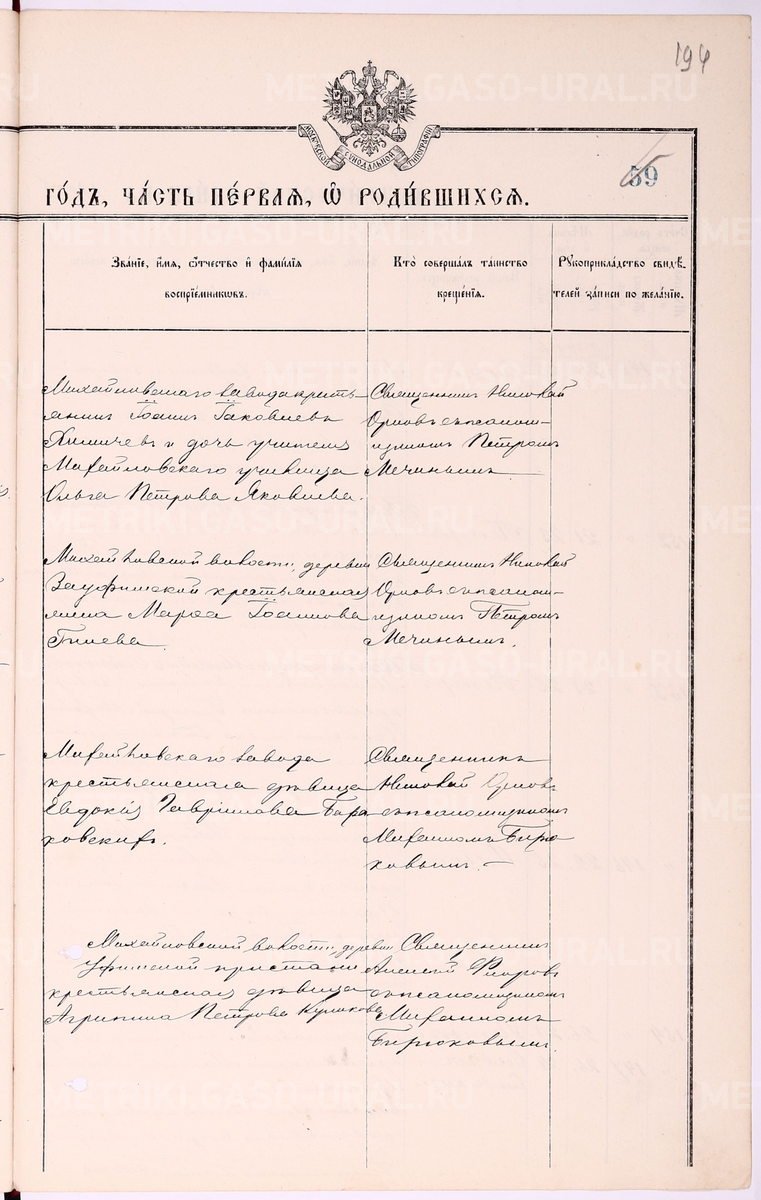 194
МОСКОВСКОЙ СѴНОДАЛЬНОЙ ТИПОГРАФІИ
59
ГО́ДЪ, ЧА́СТЬ ПЕ́РВАЯ, Ѡ҆ РОДИ́ВШИХСЯ.
Зва́ніе, и҆́мя, ѻ҆́тчество и҆ фами́лія
воспріе́мниковъ.
Кто̀ соверша́лъ та́инство
креще́нія.
Рꙋкоприкла́дство свидѣ́-
телей за́писи по жела́нію.
Михайловскаго завода кресть-
янинъ Іоаннъ Іаковлевъ
и дочь учителя
Михайловскаго училища
Ольга Петрова Яковлева.
Священникъ Николай
Орловъ съ псалом-
щикомъ Петромъ
Мечинымъ
Михайловской волости, деревни
Зауфимской крестьянская
Марѳа Іоаннова
Священникъ Николай
Орловъ съ псалом-
щикомъ Петромъ
Мечинымъ.
Михайловскаго завода
крестьянская дѣвица
Евдокія Гавріилова
Священникъ
Николай Орловъ
съ псаломщикомъ
Михаиломъ Бирю
ковымъ. —
Михайловской волости, деревни
Уфимской пристани
крестьянская дѣвица
Агрипина Петрова Куликова
Священникъ
Алексій Флоровъ
съ псаломщикомъ
Михаиломъ
Бирюковымъ.
METRIKI.GASO-URAL.RU